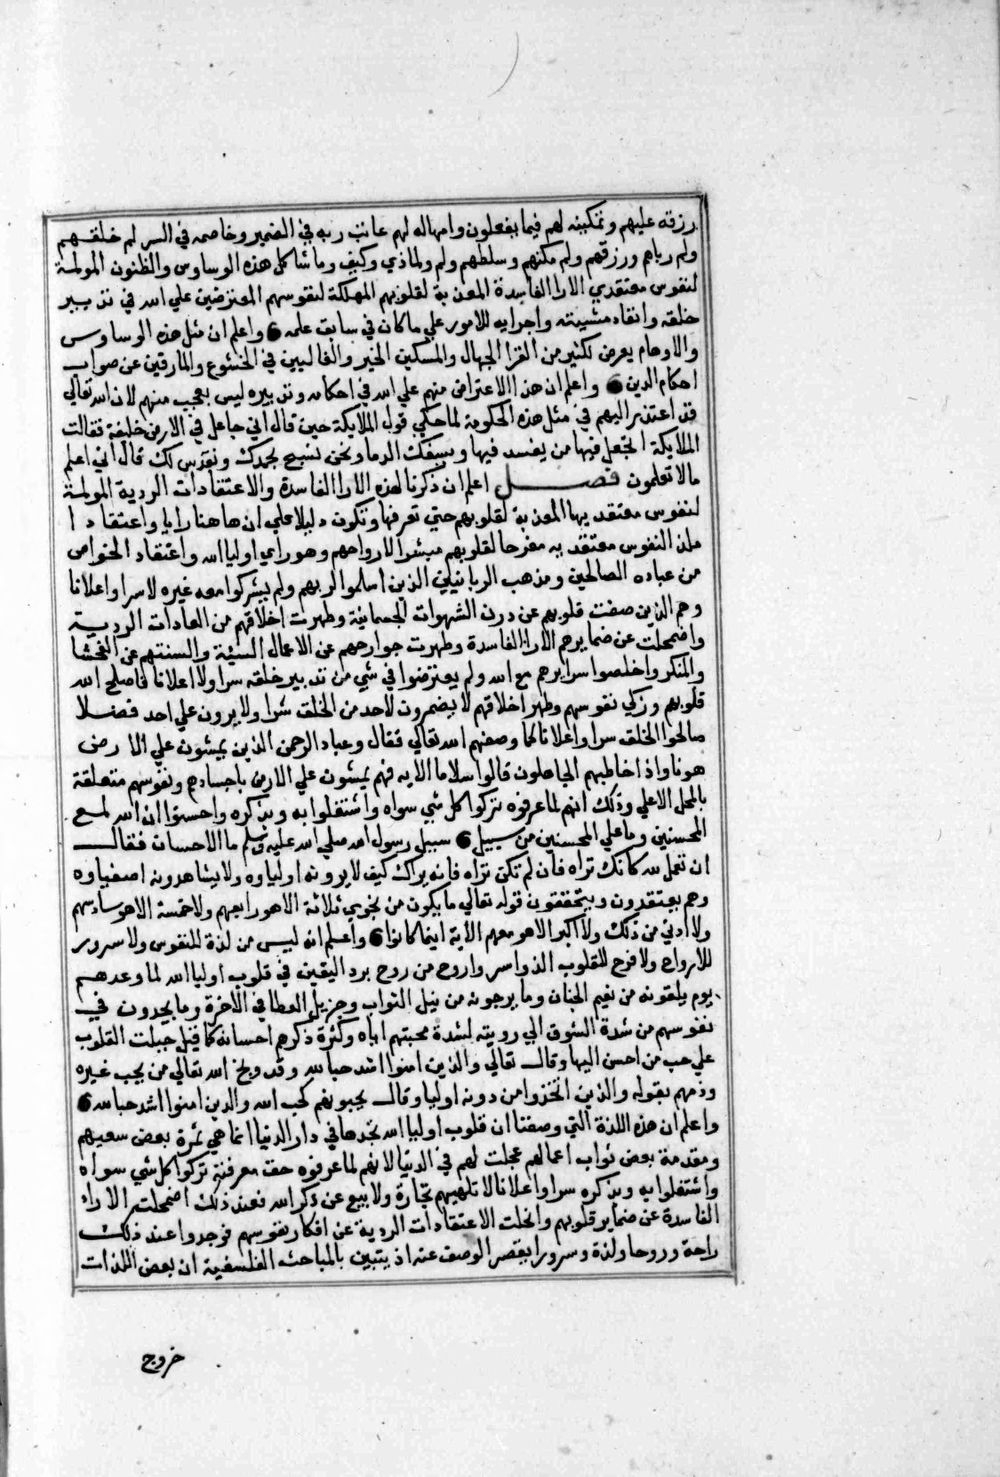 رزقه عليهم وتمكينه لهم فيما يفعلون وامهاله لهم عاتب ربه في الضمير وخاصمه في السر لم خلقهم
ولم رباهم ورزقهم ولم مكنهم وسلطهم ولم ولماذي وكيف وما شاكل هذه الوساوس والظنون المولمة
لنفوس معتقدي الارا الفاسدة المعذبة لقلوبهم المهلكة لنفوسهم المعترضين علي الله في تدبير
خلقه وانفاد مشيئته واجرايه للامور علي ماكان في سابق علمه واعلم ان مثل هذه الوساوس
والاوهام يعرض لكثير من القرا الجهال والمسكين الخير والغاليين في الخشوع والمارقين عن صواب
احكام الدين واعلم ان هذا الاعتراض منهم علي الله في احكامه وتدبيره ليس بعجيب منهم لان الله تعالي
قد اعتذر اليهم في مثل هذه الحكومة لما حكي قول الملايكة حين قال اني جاعل في الارض خليفة فقالت
الملايكة اتجعل فيها من يفسد فيها ويسفك الدما ونحن نسبح بحمدك ونقدس لك قال اني اعلم
مالا تعلمون فصل اعلم ان ذكرنا لهذه الارا الفاسدة والاعتقادات الردية المولمة
لنفوس معتقديها المعذبة لقلوبهم حتي تعرفها وتكون دليلا علي ان هاهنا رايا واعتقادا
ملذ النفوس معتقد به مفرحا لقلوبهم مبشرا لارواحهم وهو راي اوليا الله واعتقاد الخواص
من عباده الصالحين ومذهب الربانيين الذين اسلموا لربهم ولم يشركوا معه غيره لاسرا واعلانا
وهم الذين صفت قلوبهم عن درن الشهوات الجسمانية وطهرت اخلاقهم من العادات الردية
واضمحلت عن ضمايرهم الارا الفاسدة وطهرت جوارحهم عن الاعمال السيئة والسنتهم عن الفحشا
والمنكر واخلصوا سرايرهم مع الله ولم يعترضوا في شي من تدبير خلقه سرا ولا اعلانا فاصلح الله
قلوبهم وزكي نفوسهم وطهر اخلاقهم لا يضمرون لاحد من الخلق شرا ولا يرون علي احد فضلا
صالحوا الخلق سرا واعلانا كما وصفهم الله تعالي فقال وعباد الرحمن الذين يمشون علي الارض
هونا واذا خاطبهم الجاهلون قالوا سلاما الايه فهم يمشون علي الارض باجسادهم ونفوسهم متعلقة
بالمحل الاعلي وذلك انهم لما عرفوه تركوا كل شي سواه واشتغلوا به وبذكره واحسنوا ان الله لمع
المحسنين وما علي المحسنين من سبيل سبيل رسول الله صلي الله عليه وسلم ما الاحسان فقال
ان تعمل لله كانك تراه فان لم تكن تراه فانه يراك كيف لا يرونه اولياوه ولا يشاهدونه اصفياوه
وهم يعتقدون ويتحققون قوله تعالي ما يكون من نجوي ثلاثة الا هو رابعهم ولا خمسة الا هو سادسهم
ولا ادني من ذلك ولا اكبر الا هو معهم الاية اينما كانوا واعلم انه ليس من لذة للنفوس ولا سرور
للارواح ولا فرح للقلوب الذ واسر واروح من روح برد اليقين في قلوب اوليا الله لما وعدهم
يوم يلقونه من نعيم الجنان وما يرجونه من نيل الثواب وجزيل العطا في الاخرة وما يجدون في
نفوسهم من شدة الشوق الي رويته لشدة محبتهم اياه وكثرة ذكرهم احسانه كما قيل جبلت القلوب
علي حب من احسن اليها وقال تعالي والذين امنوا اشد حبا لله وقد وبخ الله تعالي من يحب غيره
وذمهم بقوله والذين اتخذوا من دونه اوليا وقال يحبونهم كحب الله والذين امنوا اشد حبا لله
واعلم ان هذه اللذة التي وصفنا ان قلوب اوليا الله تجدها في دار الدنيا انما هي ثمرة بعض سعيهم
ومقدمة بعض ثواب اعمالهم عجلت لهم في الدنيا لانهم لما عرفوه حق معرفته تركوا كل شي سواه
واشتغلوا به وبذكره سرا واعلانا لا تلهيهم تجارة ولا بيع عن ذكر الله فعند ذلك اضمحلت الاراء
الفاسدة عن ضماير قلوبهم وانحلت الاعتقادات الردية عن افكار نفوسهم فوجدوا عند ذلك
راحة وروحا ولذة وسرورا يقصر الوصف عنه اذ يتبين بالمباحث الفلسفية ان بعض اللذات
خروج